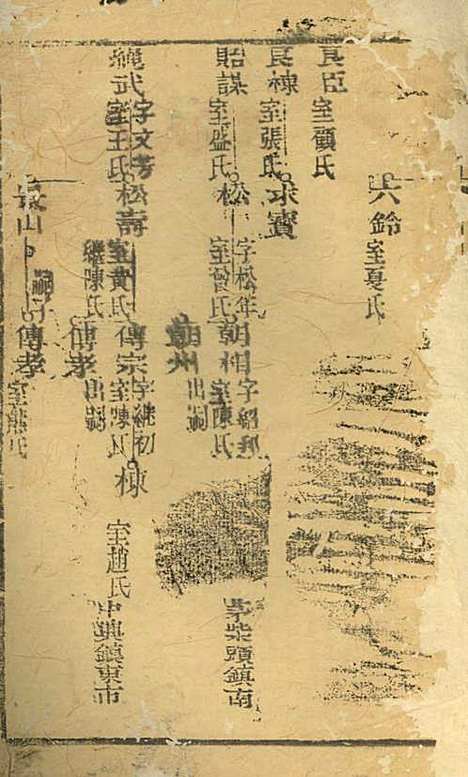 六鈴 室夏氏
良臣 室顧氏
良棟 室張氏 求寶
貽謀 室盛氏 松 字松年 室曾氏 朝相 字紹 室陳氏 茅柴頭鎮南
朝州 出嗣
繩武 字文芳 室王氏 松壽 室黄氏 繼陳氏 傳宗 字繼初 室陳氏 棟 室趙氏 中興鎮東市
傳孝 出嗣
山 嗣子 傳孝 室熊氏